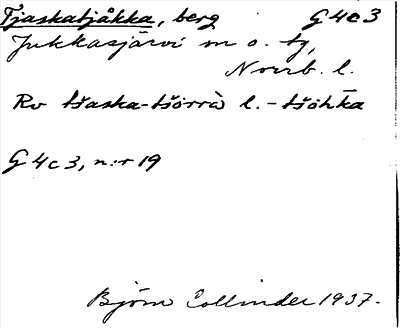 Tjaskatjåkka, berg G4c3
Jukkasjärvi sn o. tg,
Norrb. l.
Rv tšaska-tšorrà l. - tšohka
G4c3, n:r 19
Björn Collinder 1937.